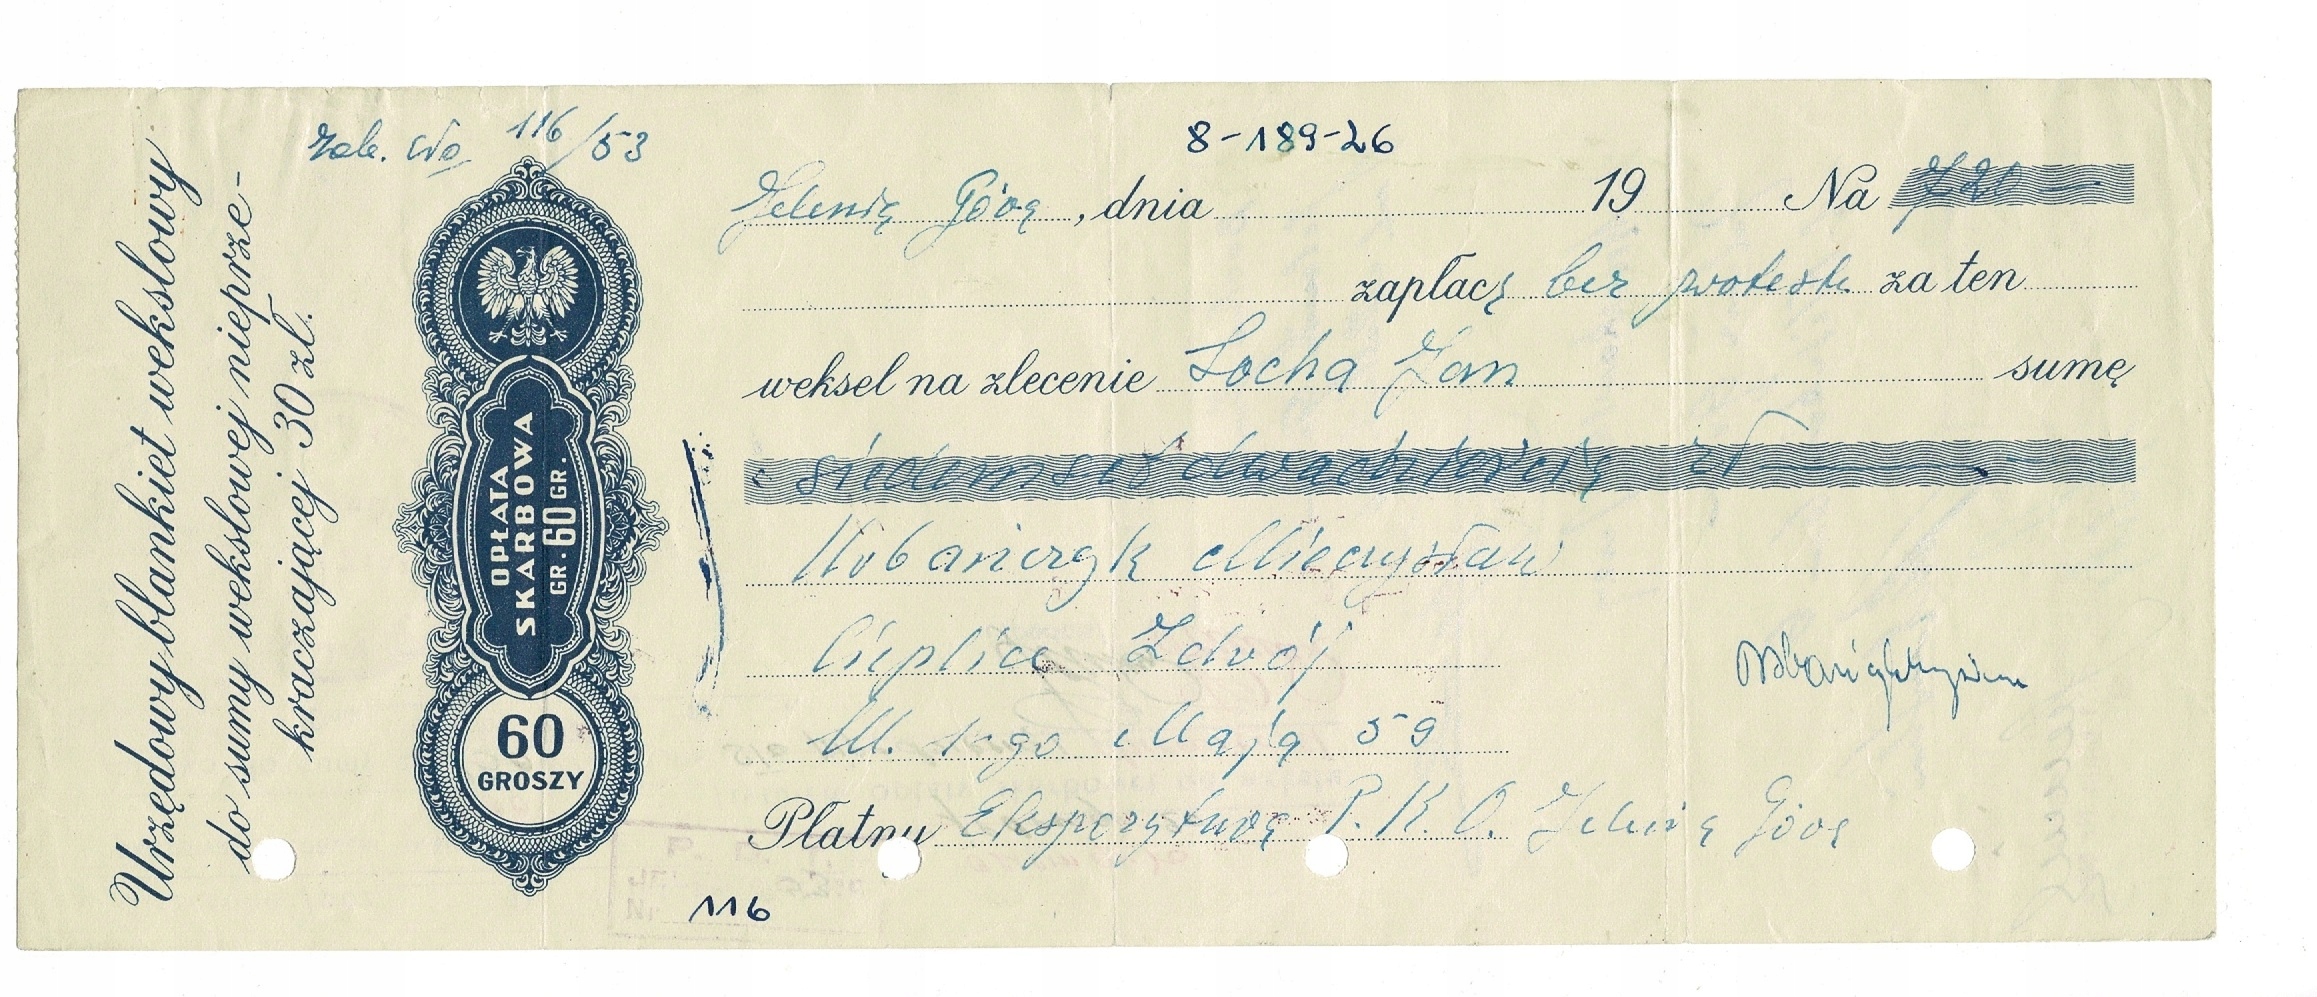 Urzędowy blankiet wekslowy
do sumy wekslowej nieprze-
kraczającej 30 zł.
116/53
OPŁATA
SKARBOWA
GR. 60 GR.
60
GROSZY
8-189-26
Jelenia Góra, dnia 19 Na 720 —
zapłacę bez protestu za ten
weksel na zlecenie Socha Jan sumę
siedemset dwadzieścia zł
Urbańczyk Mieczysław
Cieplice Zdrój
Ul. 1-go Maja 59
Płatny Ekspozytura P.K.O. Jelenia Góra
116